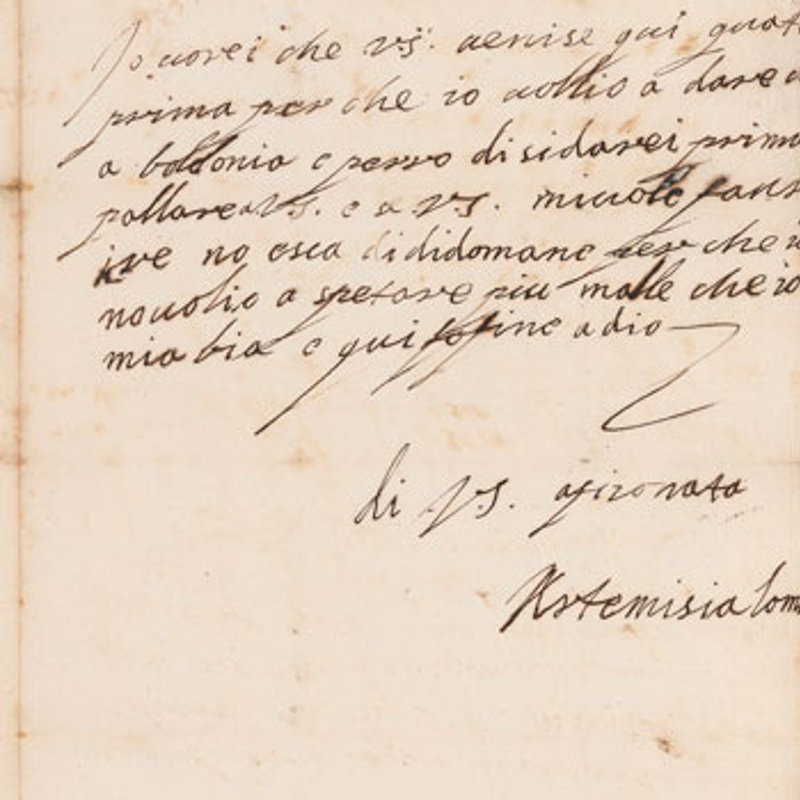 Io vorei che v.s. venise qui quat
prima per che io vollio a dare
a bollonia e perro disidarei prima
parllare a V.S. e se V.S. mi vole
no esca di didomane per che
no volio a spetare piu malle che io
mi abia e qui fine adio
di V.S. afizonata
Artemisia lom